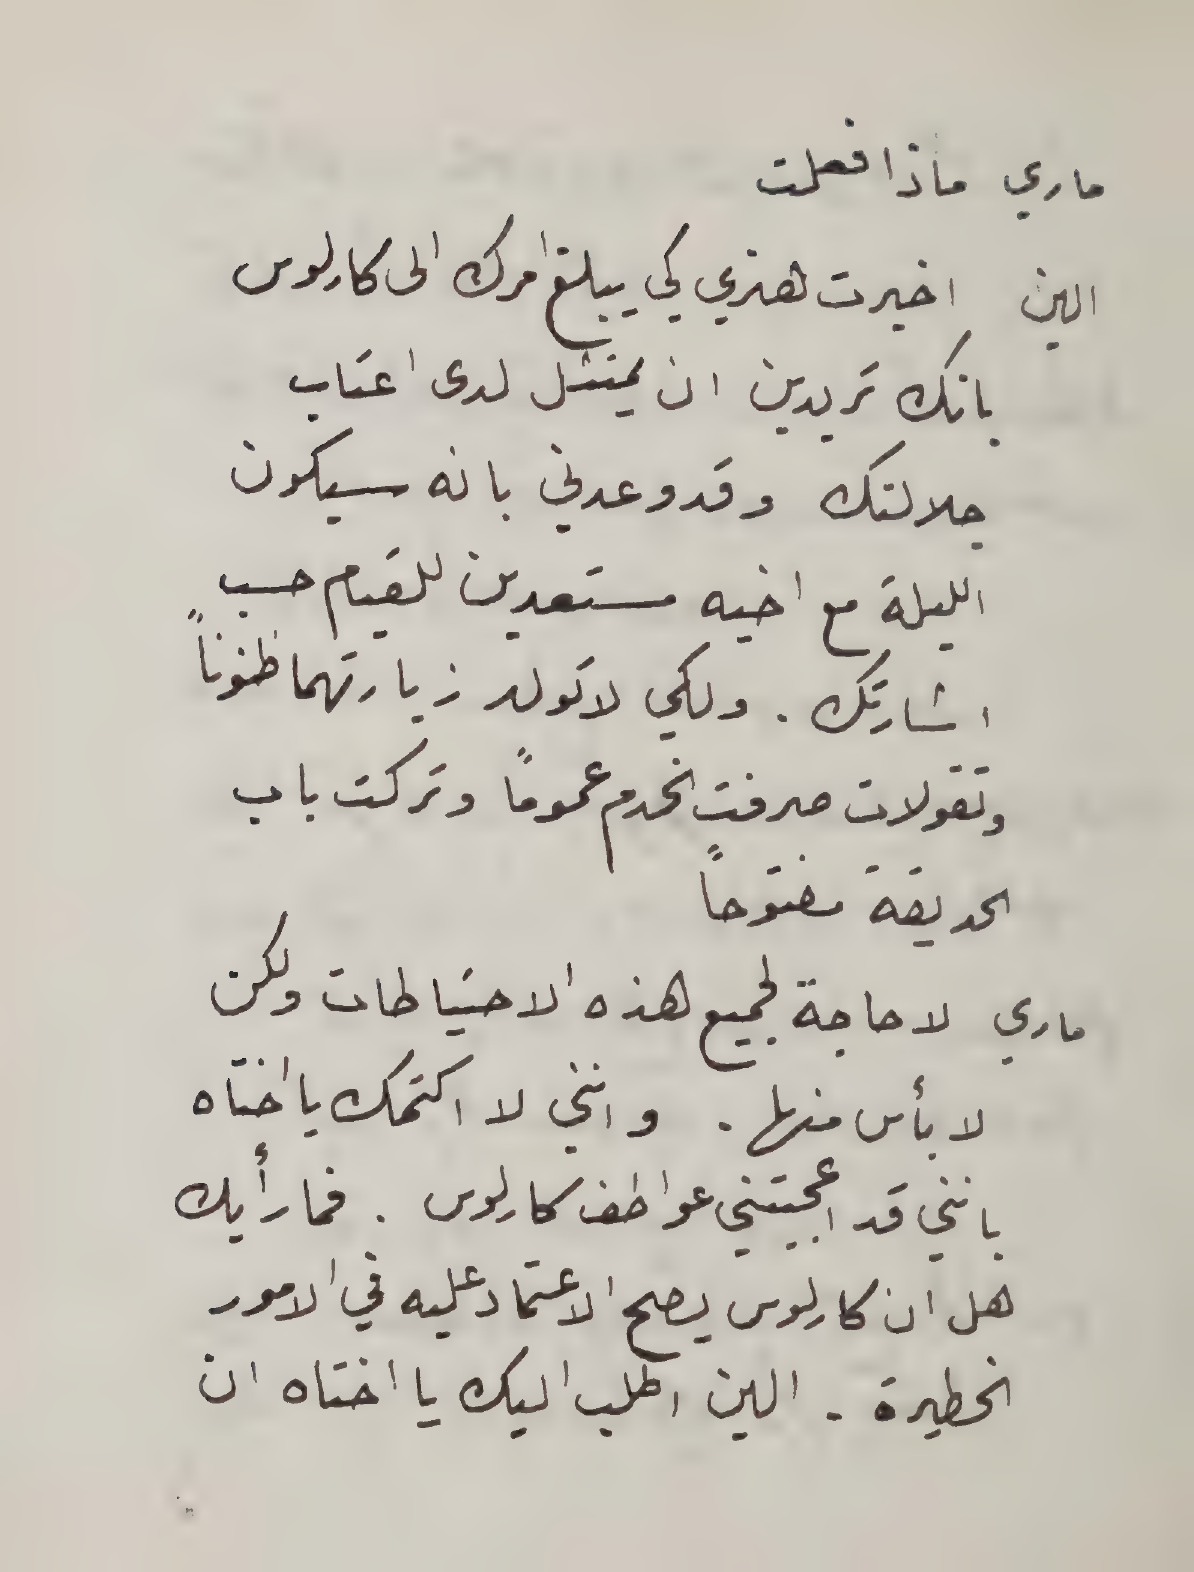 ماري ماذا فعلت
الين اخبرت هنري كي يبلغ امرك الى كارلوس
بانك تريدين ان يمتثل لدى اعتاب
جلالتك وقد وعدني بانه سيكون
الليلة مع اخيه مستعدين للقيام حسب
اشارتك . ولكي لا تولد زيارتهما ظنوناً
وتقولات صرفت الخدم عموماً وتركت باب
الحديقة مفتوحاً
ماري لا حاجة لجميع هذه الاحتياطات ولكن
لا بأس منها . وانني لا اكتمك يا اختاه
بانني قد اعجبتني عواطف كارلوس . فما رأيك
هل ان كارلوس يصح الاعتماد عليه في الامور
الخطيرة . الين اطلب اليك يا اختاه ان